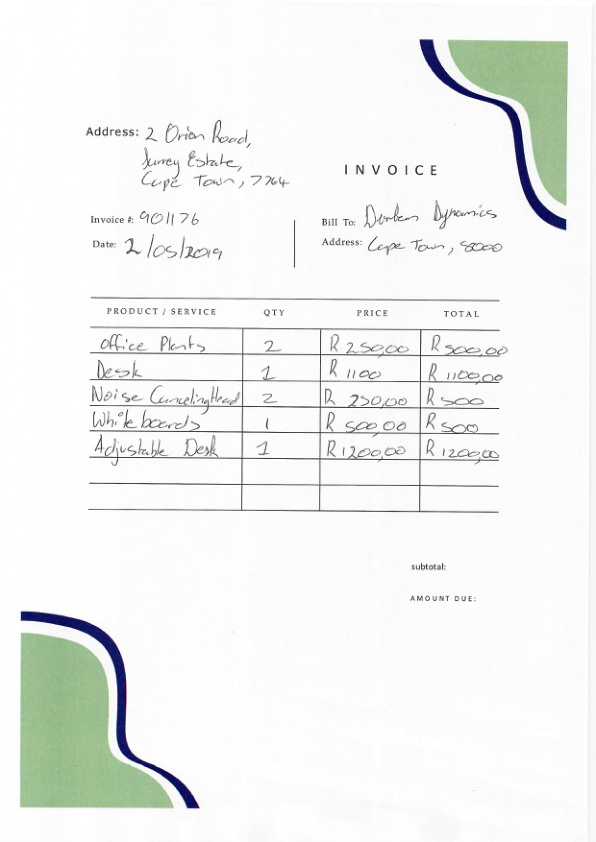 Address: 2 Orion Road,
Surrey Estate,
Cape Town, 7764
INVOICE
Invoice #: 901176
Bill To: Durban Dynamics
Date: 2/05/2019
Address: Cape Town, 8000
PRODUCT / SERVICE QTY PRICE TOTAL
Office Plants 2 R 250,00 R 500,00
Desk 1 R 1100 R 1100,00
Noise CancelingHead 2 R 250,00 R 500
Whiteboards 1 R 500,00 R 500
Adjustable Desk 1 R 1200,00 R 1200,00
subtotal:
AMOUNT DUE: